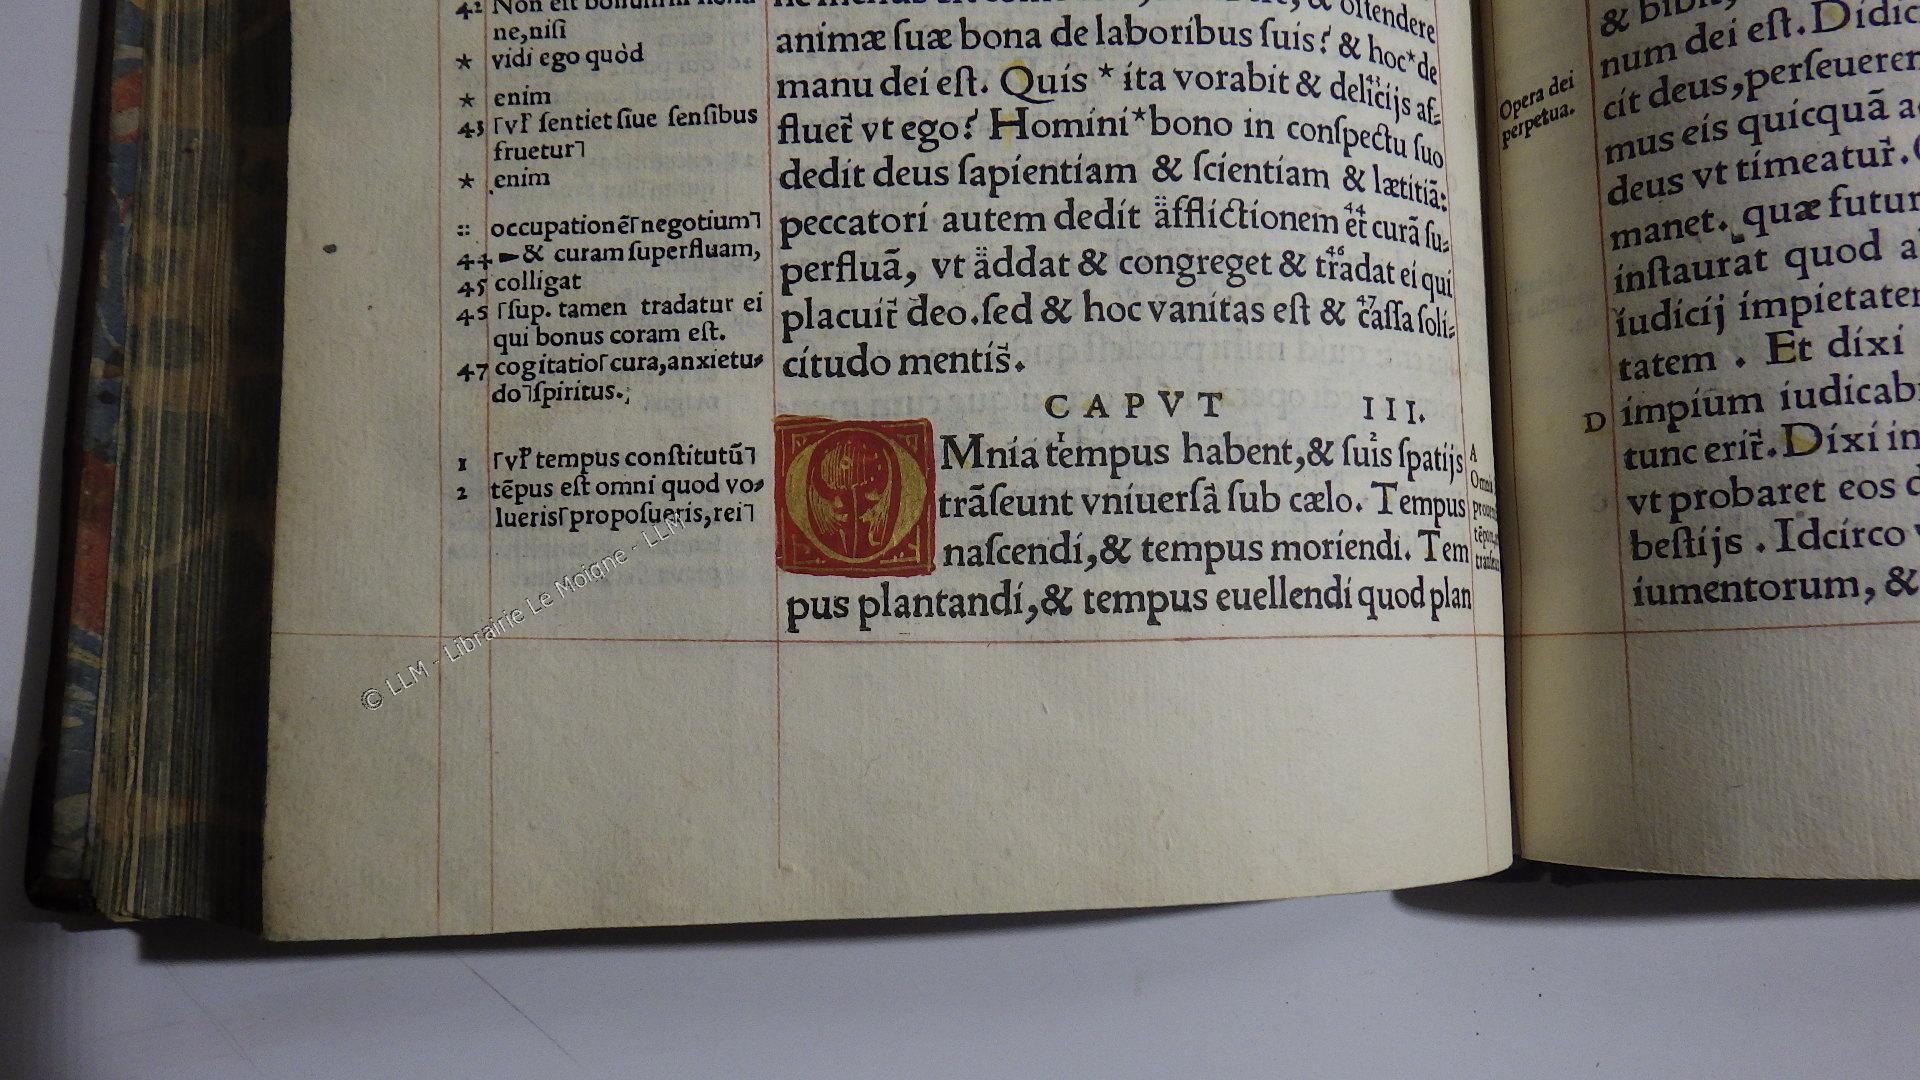 42 Non est bonum in
ne,niſi
* vidi ego quòd
* enim
43 ⌈vľ ſentiet ſiue ſenſibus
fruetur⌉
* enim
:: occupationẽ⌈negotium⌉
44 ☛& curam ſuperfluam,
45 colligat
45 ⌈ſup. tamen tradatur ei
qui bonus coram eſt.
47 cogitatio⌈cura,anxietu-
do⌉ſpiritus.
1 ⌈vľ tempus conſtitutũ⌉
2 tẽpus eſt omni quod vo-
lueris⌈propoſueris,rei⌉
& oſtendere
animæ ſuæ bona de laboribus ſuis? & hoc*de
manu dei eſt. Quis * ita vorabit & 43delicijs af-
fluet̃ vt ego? Homini*bono in conſpectu ſuo
dedit deus ſapientiam & ſcientiam & lætitiã:
peccatori autem dedit ::afflictionem 44et curã ſu-
perfluã, vt äddat & congreget & 46tradat ei qui
placuit̃ deo.ſed & hoc vanitas eſt & 47caſſa ſoli-
citudo mentis̃.
CAPVT III.
OMnia 1tempus habent,& 2ſuis ſpatijs
trãſeunt vniuerſã ſub cælo. Tempus
naſcendi,& tempus moriendi. Tem
pus plantandi,& tempus euellendi quod plan
A
Opera dei
perpetua.
num dei eſt. Didic
cit deus,perſeueren
mus eis quicquã a
deus vt timeatur̃.
manet. quæ futur
inſtaurat quod a
iudicij impietatem
tatem . Et dixi
D impium iudicabi
tunc erit̃. Dixi in
vt probaret eos d
beſtijs . Idcirco v
iumentorum, &
© LLM - Librairie Le Moigne - LLM